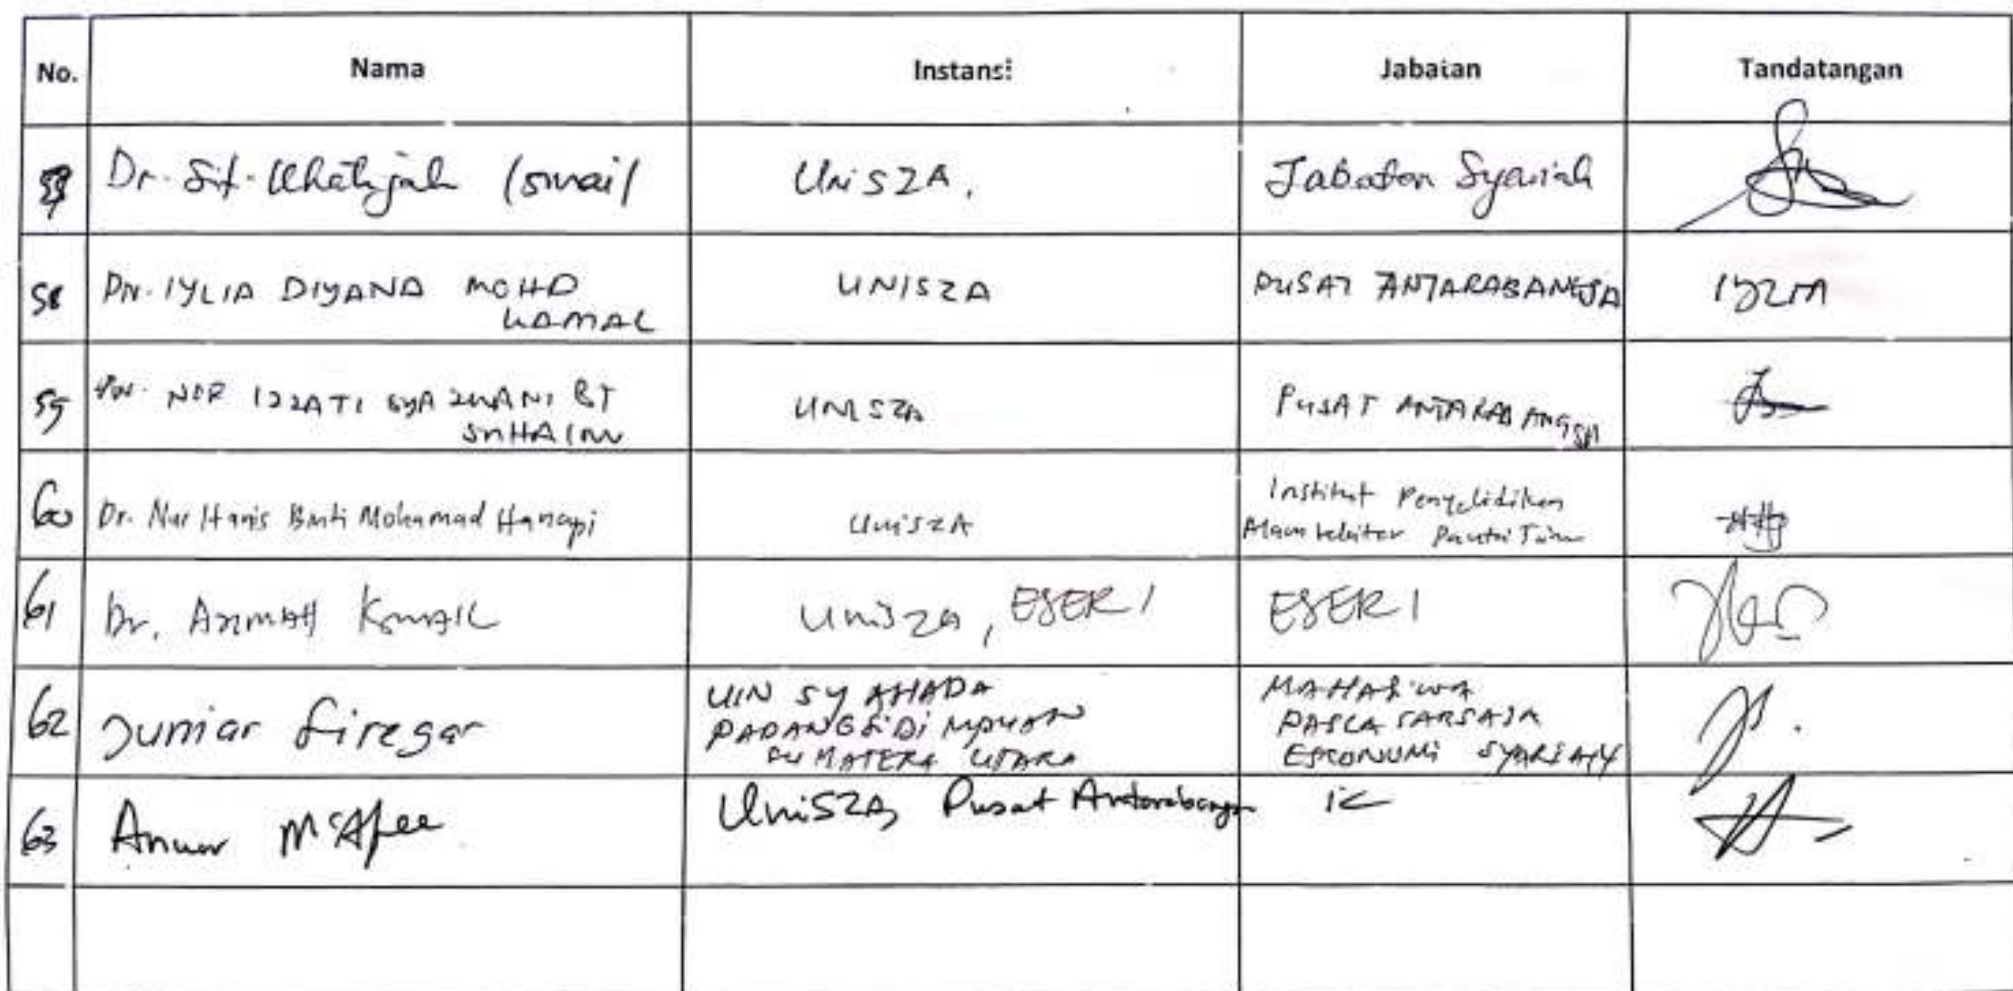 No. Nama Instansi Jabatan Tandatangan
57 Dr. Siti Khatijah Ismail UniSZA, Jabatan Syariah
58 PN. IYLIA DIYANA MOHD KAMAL UNISZA PUSAT ANTARABANGSA
59 PN. NOR IZZATI SYAZWANI BT UNISZA PUSAT ANTARABANGSA
60 Dr. Nur Hanis Binti Mohamad Hanapi UniSZA Institut Penyelidikan
Alam Sekitar Pantai Timur
61 Dr. UniSZA, ESERI ESERI
62 Juniar Siregar UIN SYAHADA MAHASIWA
PADANGSIDIMPUAN PASCA SARJANA
SUMATERA UTARA EKONOMI SYARIAH
63 Anuar McAfee UniSZA, Pusat Antarabangsa